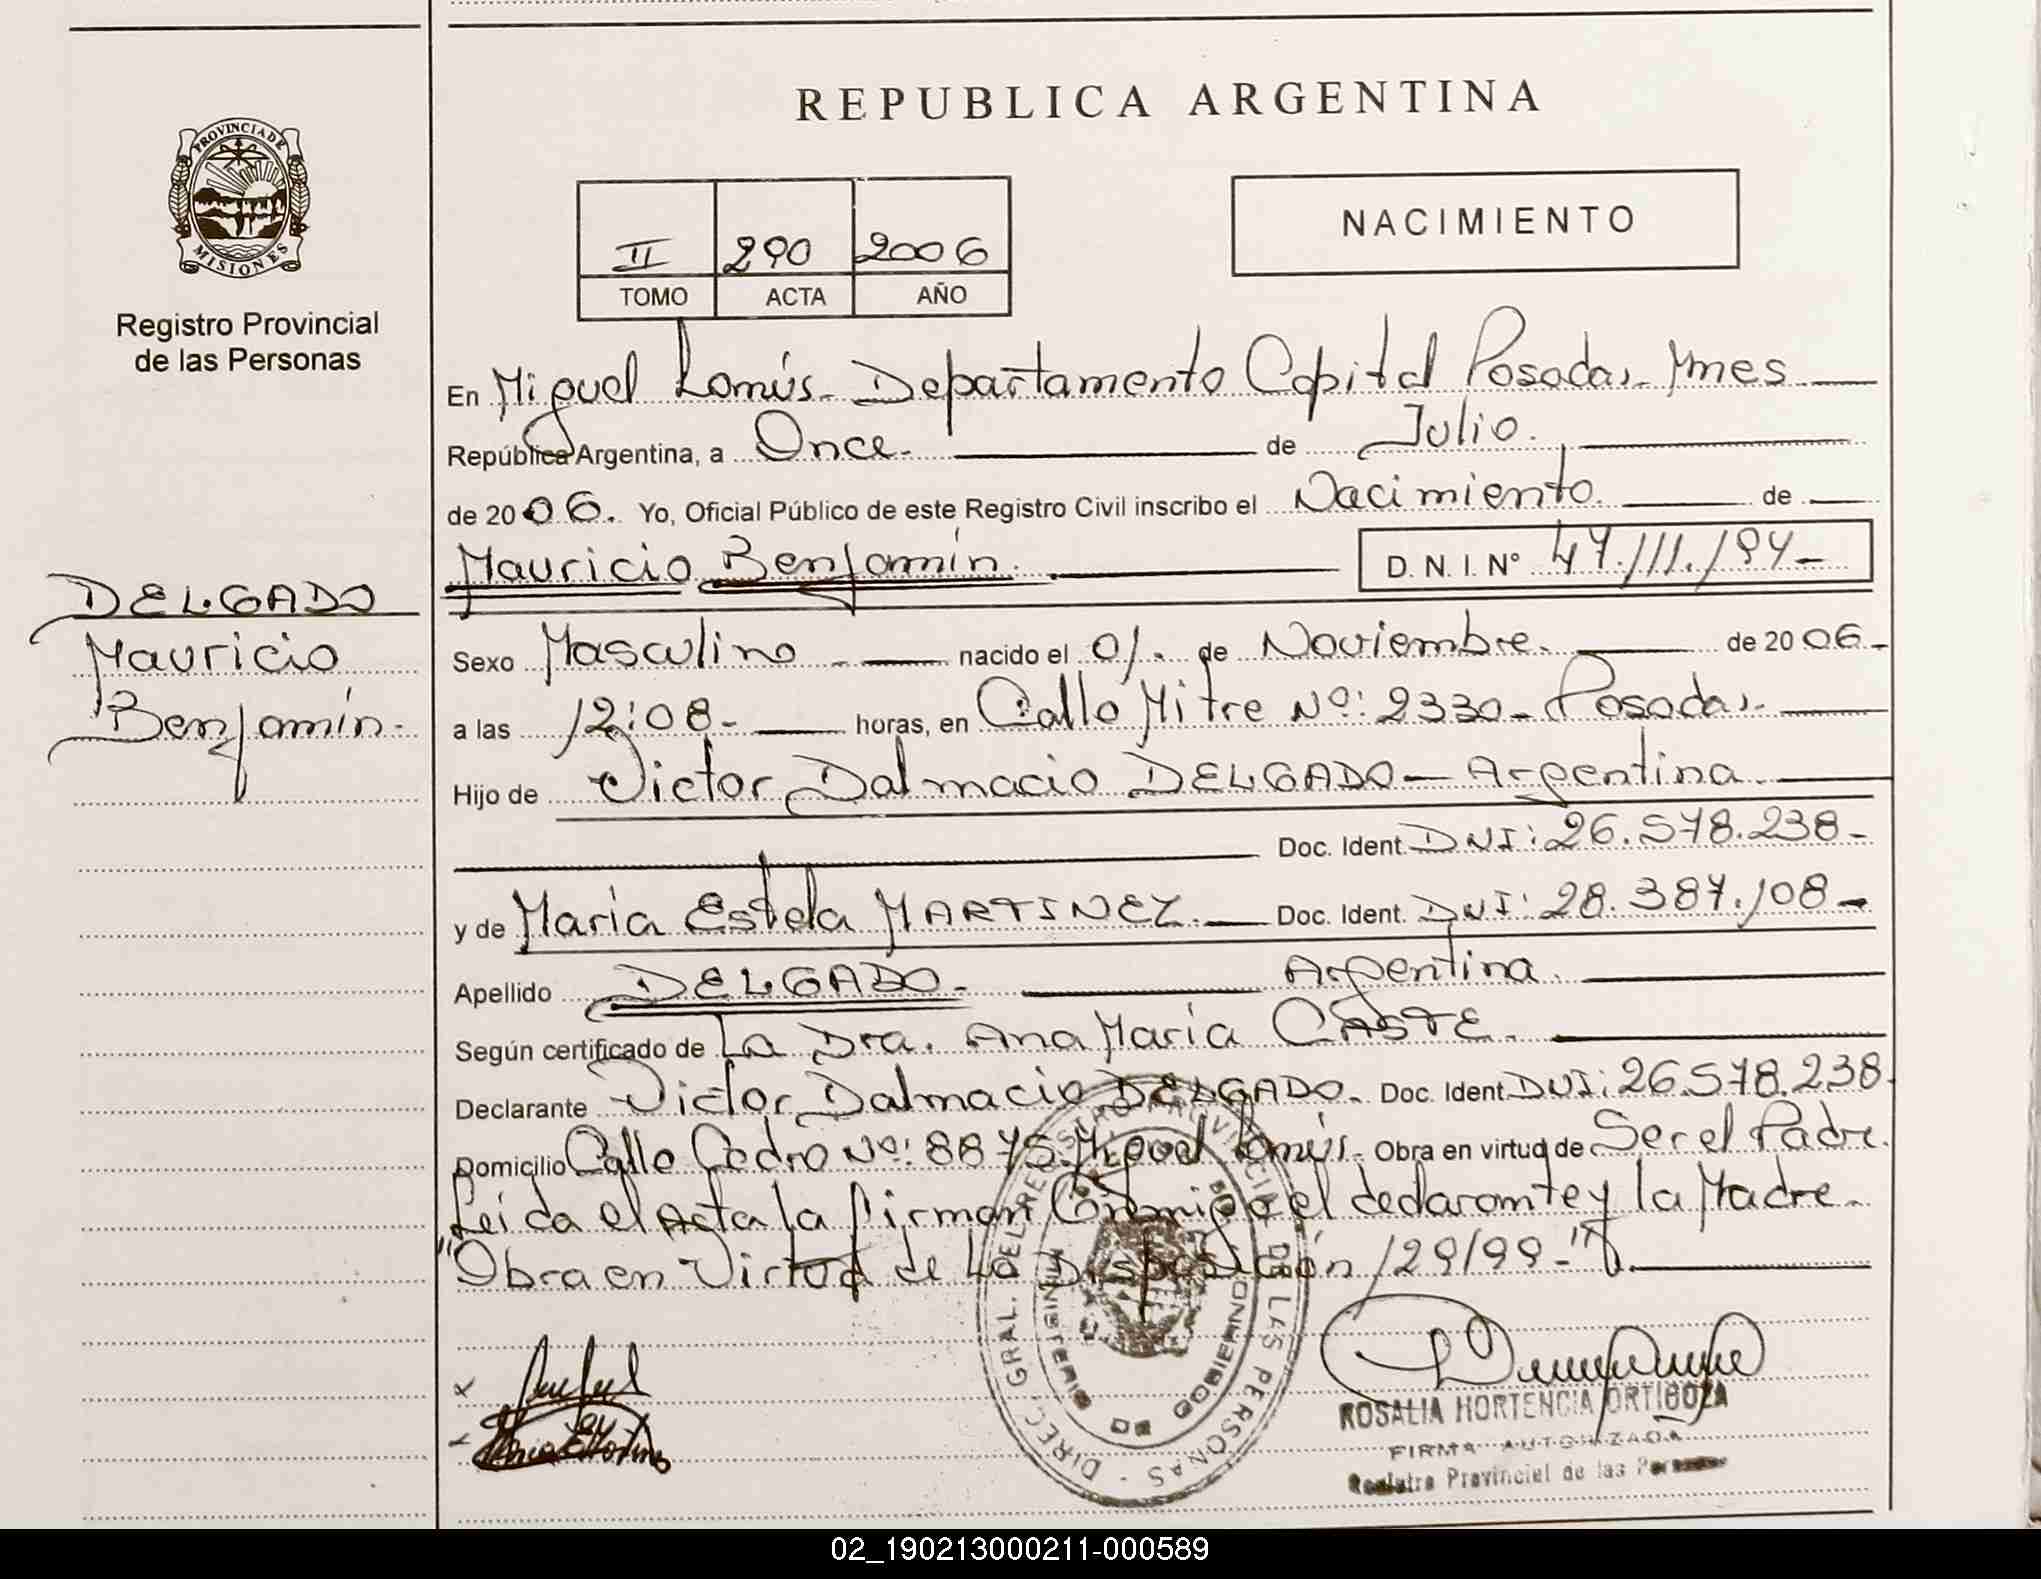 REPUBLICA ARGENTINA
PROVINCIA DE
MISIONES
Registro Provincial
de las Personas
II 290 2006
TOMO ACTA AÑO
NACIMIENTO
En Miguel Lanús - Departamento Capital Posadas - Mnes
República Argentina, a Once. de Julio.
de 2006. Yo, Oficial Público de este Registro Civil inscribo el Nacimiento. de
Mauricio Benjamín. D. N. I. Nº 47.111.194-
DELGADO
Mauricio
Benjamín.
Sexo Masculino - nacido el 01. de Noviembre. de 2006-
a las 12:08- horas, en Calle Mitre Nº: 2330- Posadas.
Hijo de Victor Dalmacio DELGADO - Argentina.
Doc. Ident. DNI: 26.578.238-
y de María Estela MARTINEZ. Doc. Ident. DNI: 28.387.108-
Apellido DELGADO. Argentina.
Según certificado de La Dra. Ana María CASTE.
Declarante Victor Dalmacio DELGADO. Doc. Ident. DNI: 26.578.238
Domicilio Calle Cedro Nº: 8875. Miguel Lanús. Obra en virtud de Ser el Padre.
Leída el Acta la firman Conmigo el declarante y la Madre.
"Obra en Virtud de La Disposición 129/99-"
DIREC. GRAL. DEL REGISTRO PROVINCIAL DE LAS PERSONAS -
MINISTERIO DE GOBIERNO
x
x
ROSALIA HORTENCIA ORTIGOZA
FIRMA AUTORIZADA
Registro Provincial de las Personas
02_190213000211-000589